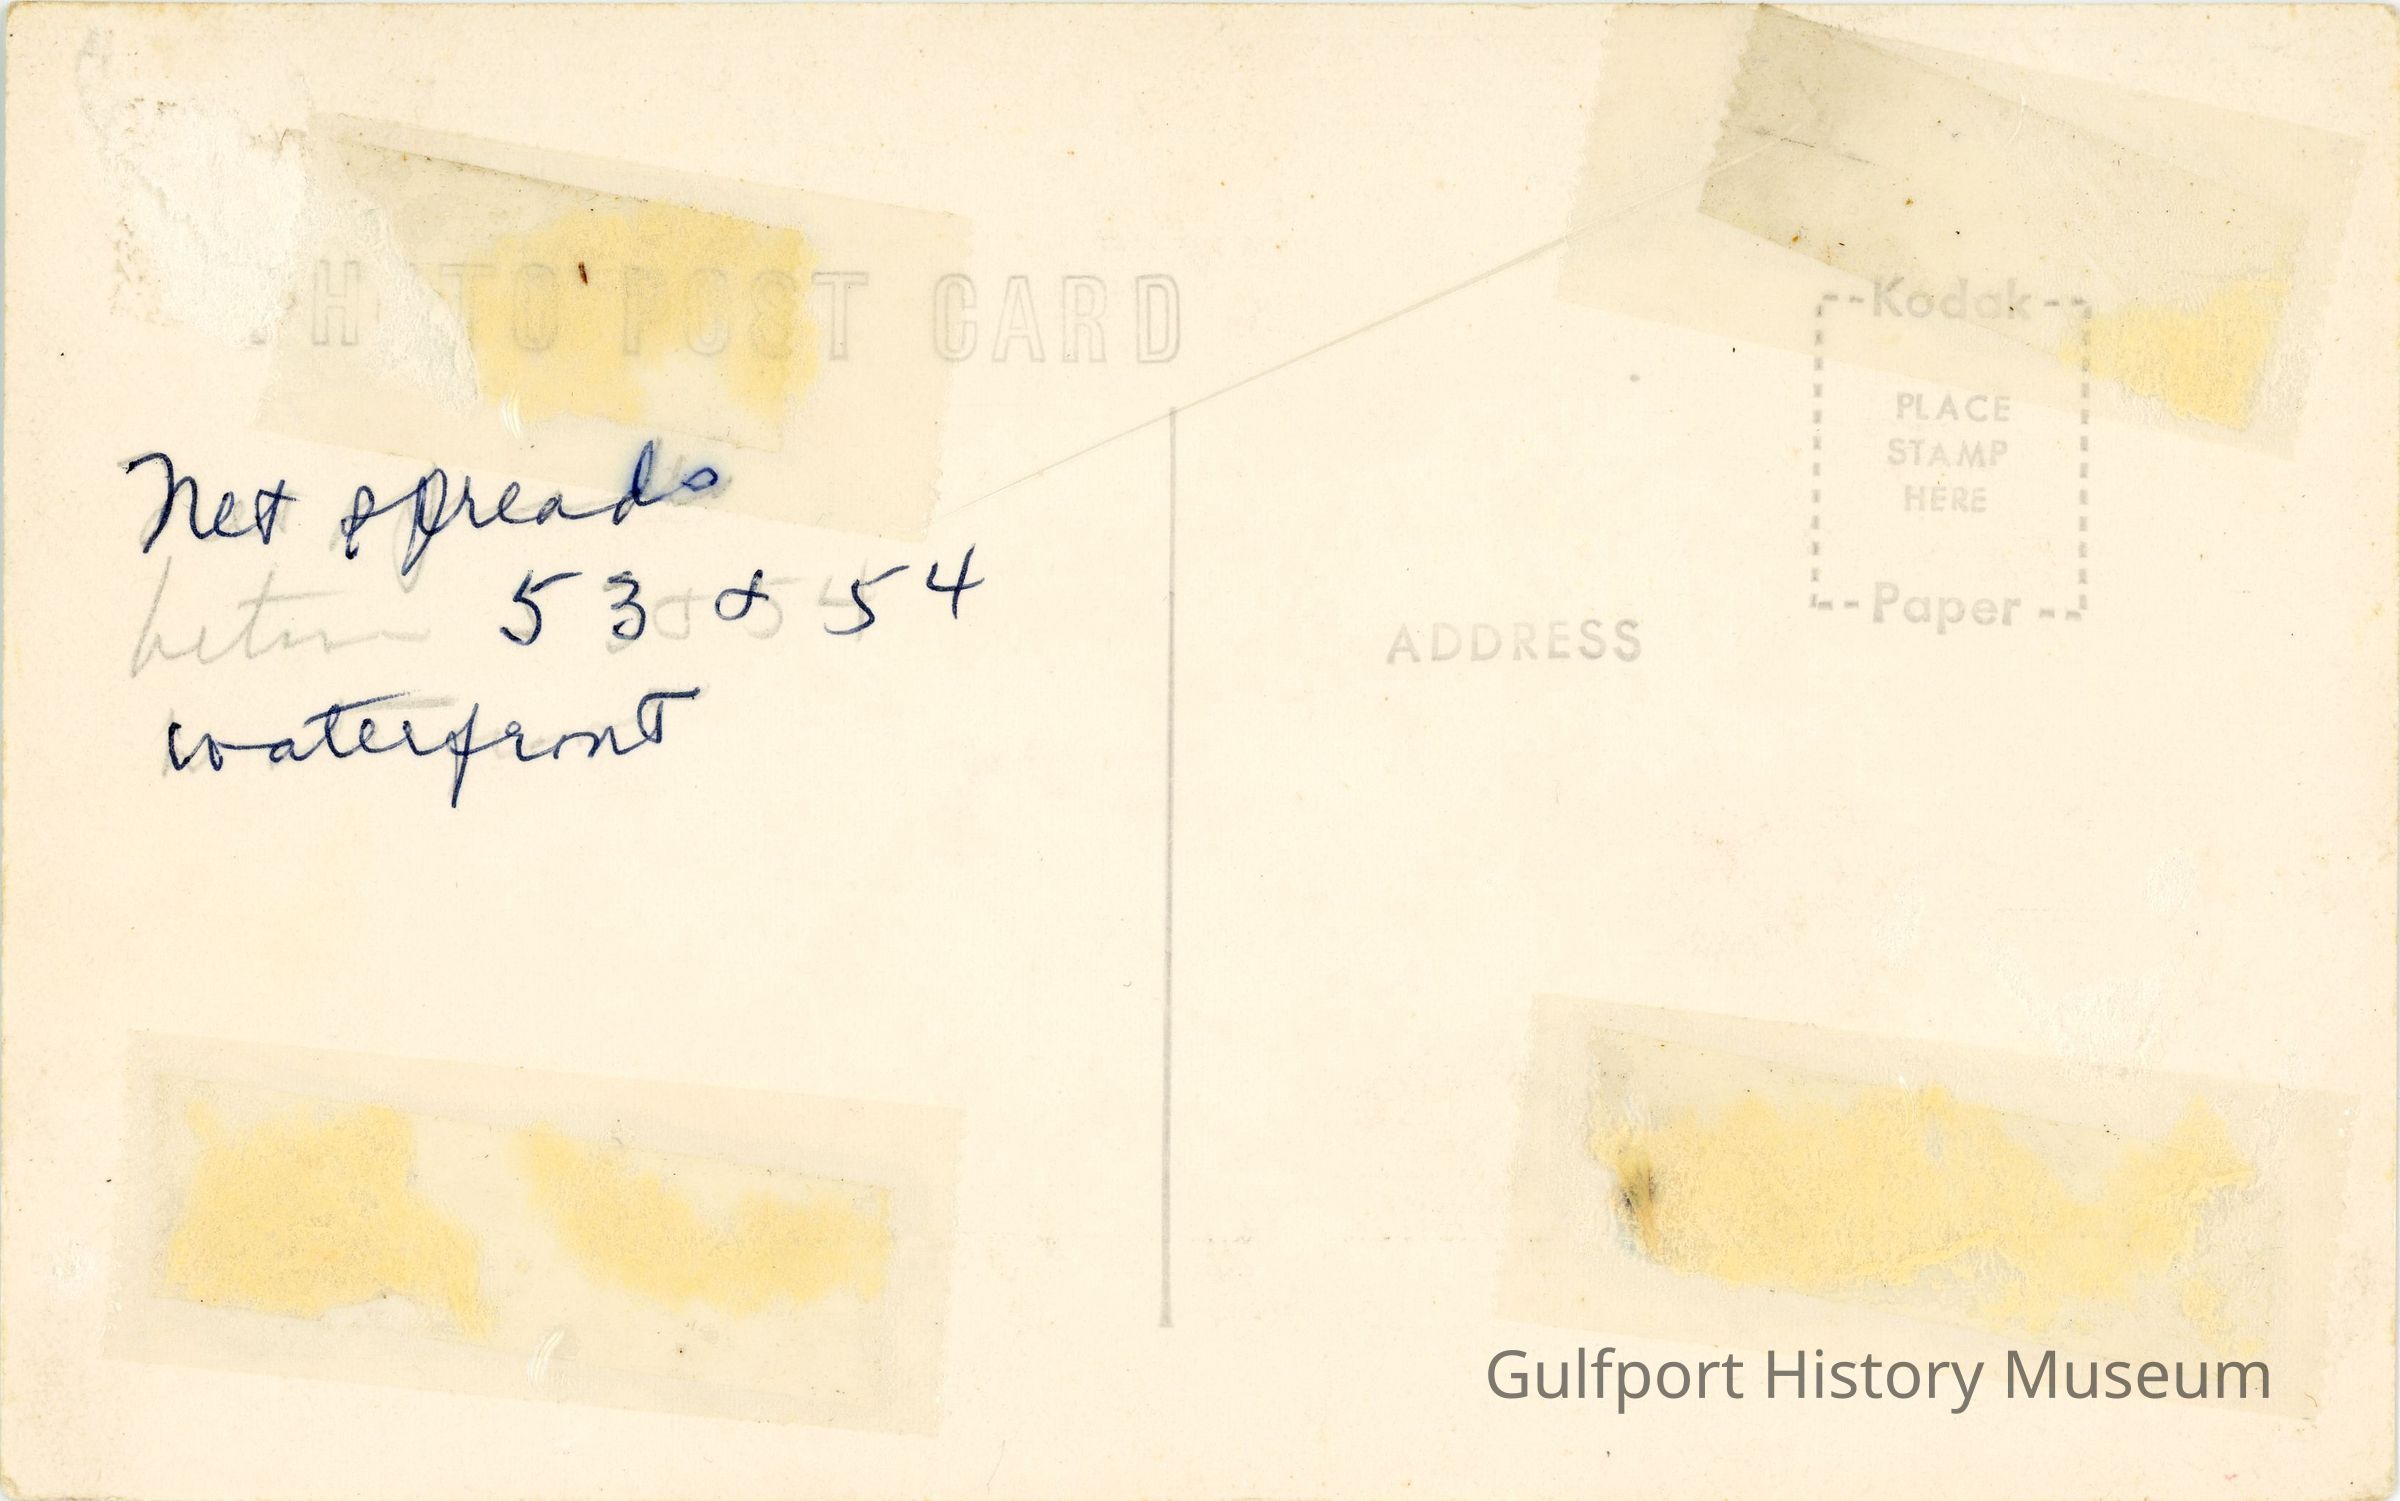 PHOTO POST CARD
Net spreads
53 & 54
waterfront
Kodak
PLACE
STAMP
HERE
Paper
ADDRESS
Gulfport History Museum